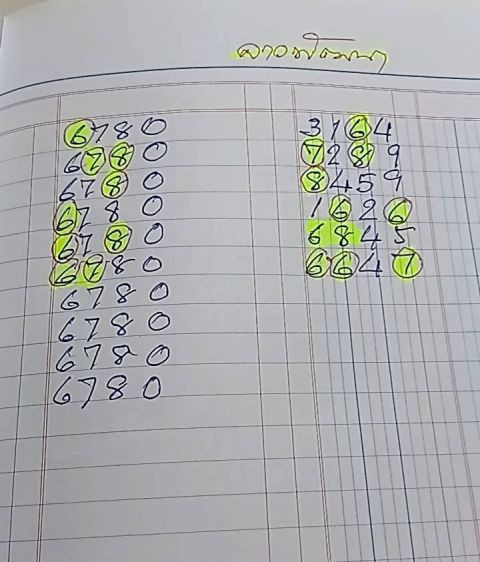 ลาวพัฒนา
6780 3164
6780 7289
6780 8459
6780 1626
6780 6845
6780 6647
6780
6780
6780
6780